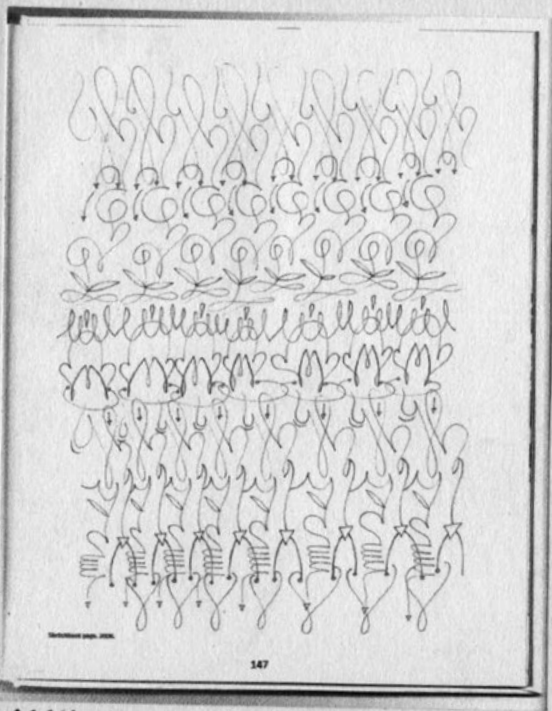 Sketchbook page, 2008.
147